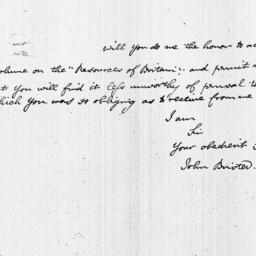 will you do me the honor to ac
olume on the "Resources of Britain": and permit m
t you will find it less unworthy of perusal t
hich you was so obliging as to receive from me
I am
Sir
Your obedient
John Bristed.